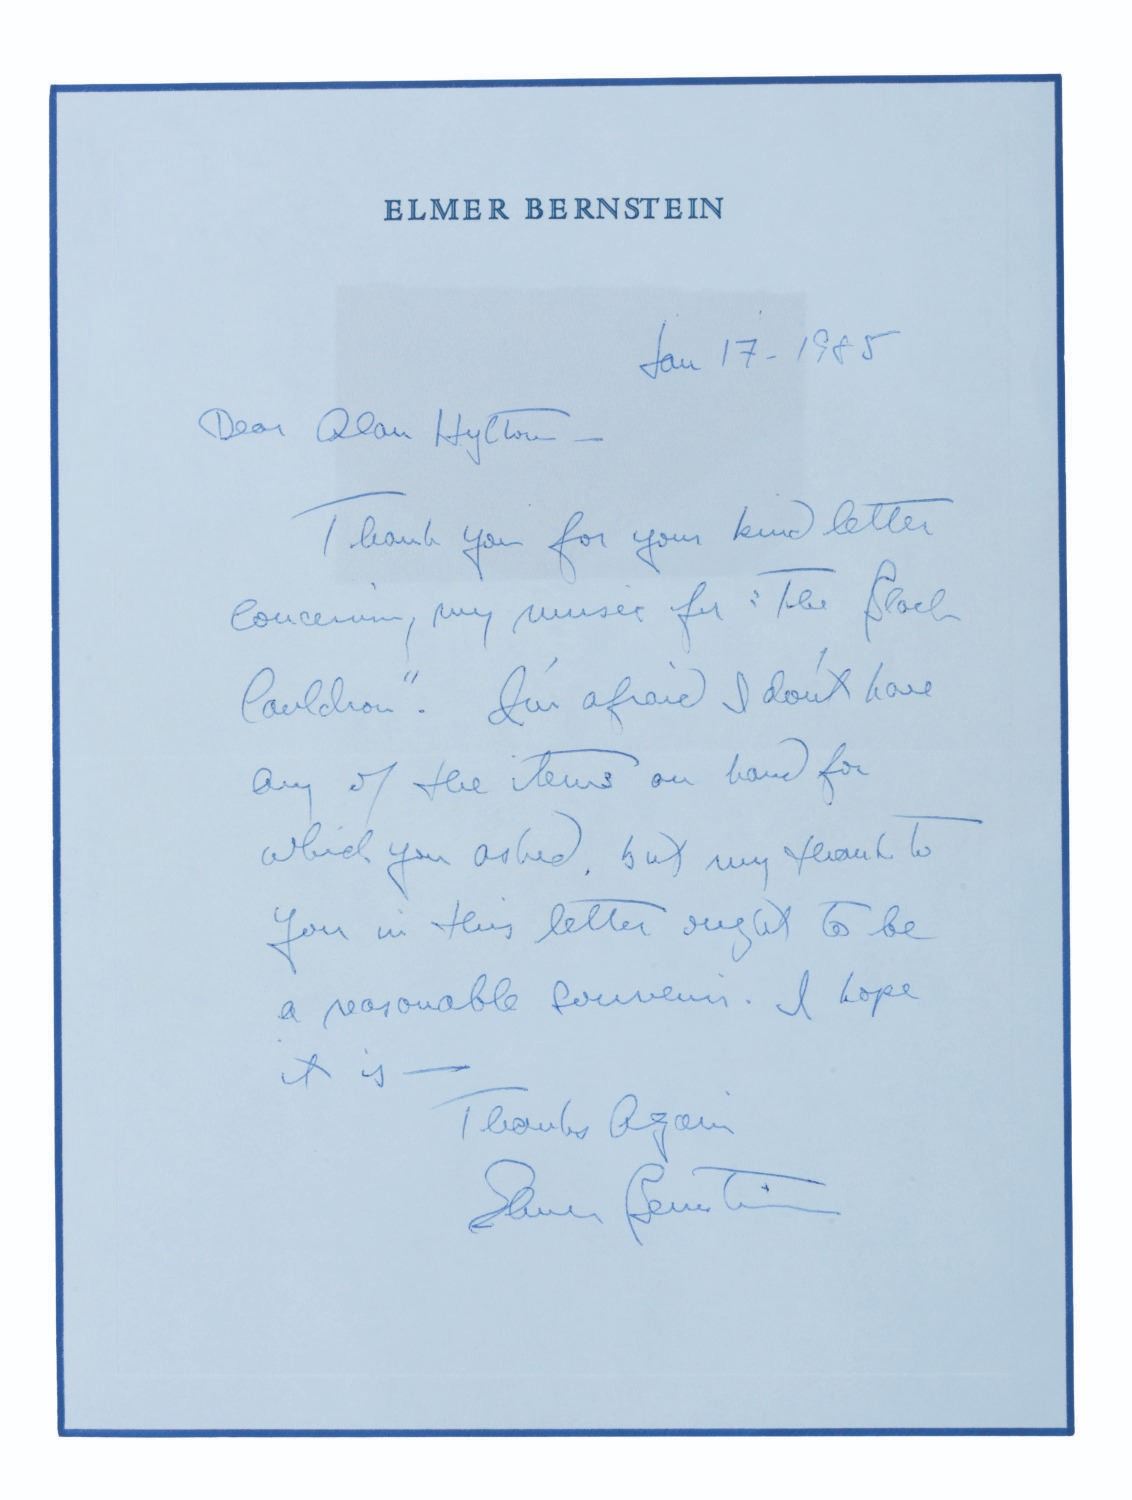 ELMER BERNSTEIN
Jan 17 - 1985
Dear Alan Hylton —
Thank you for your kind letter
concerning my music for "The Black
Cauldron". I'm afraid I don't have
any of the items on hand for
which you asked, but my thank to
you in this letter ought to be
a reasonable souvenir. I hope
it is —
Thanks Again
Elmer Bernstein